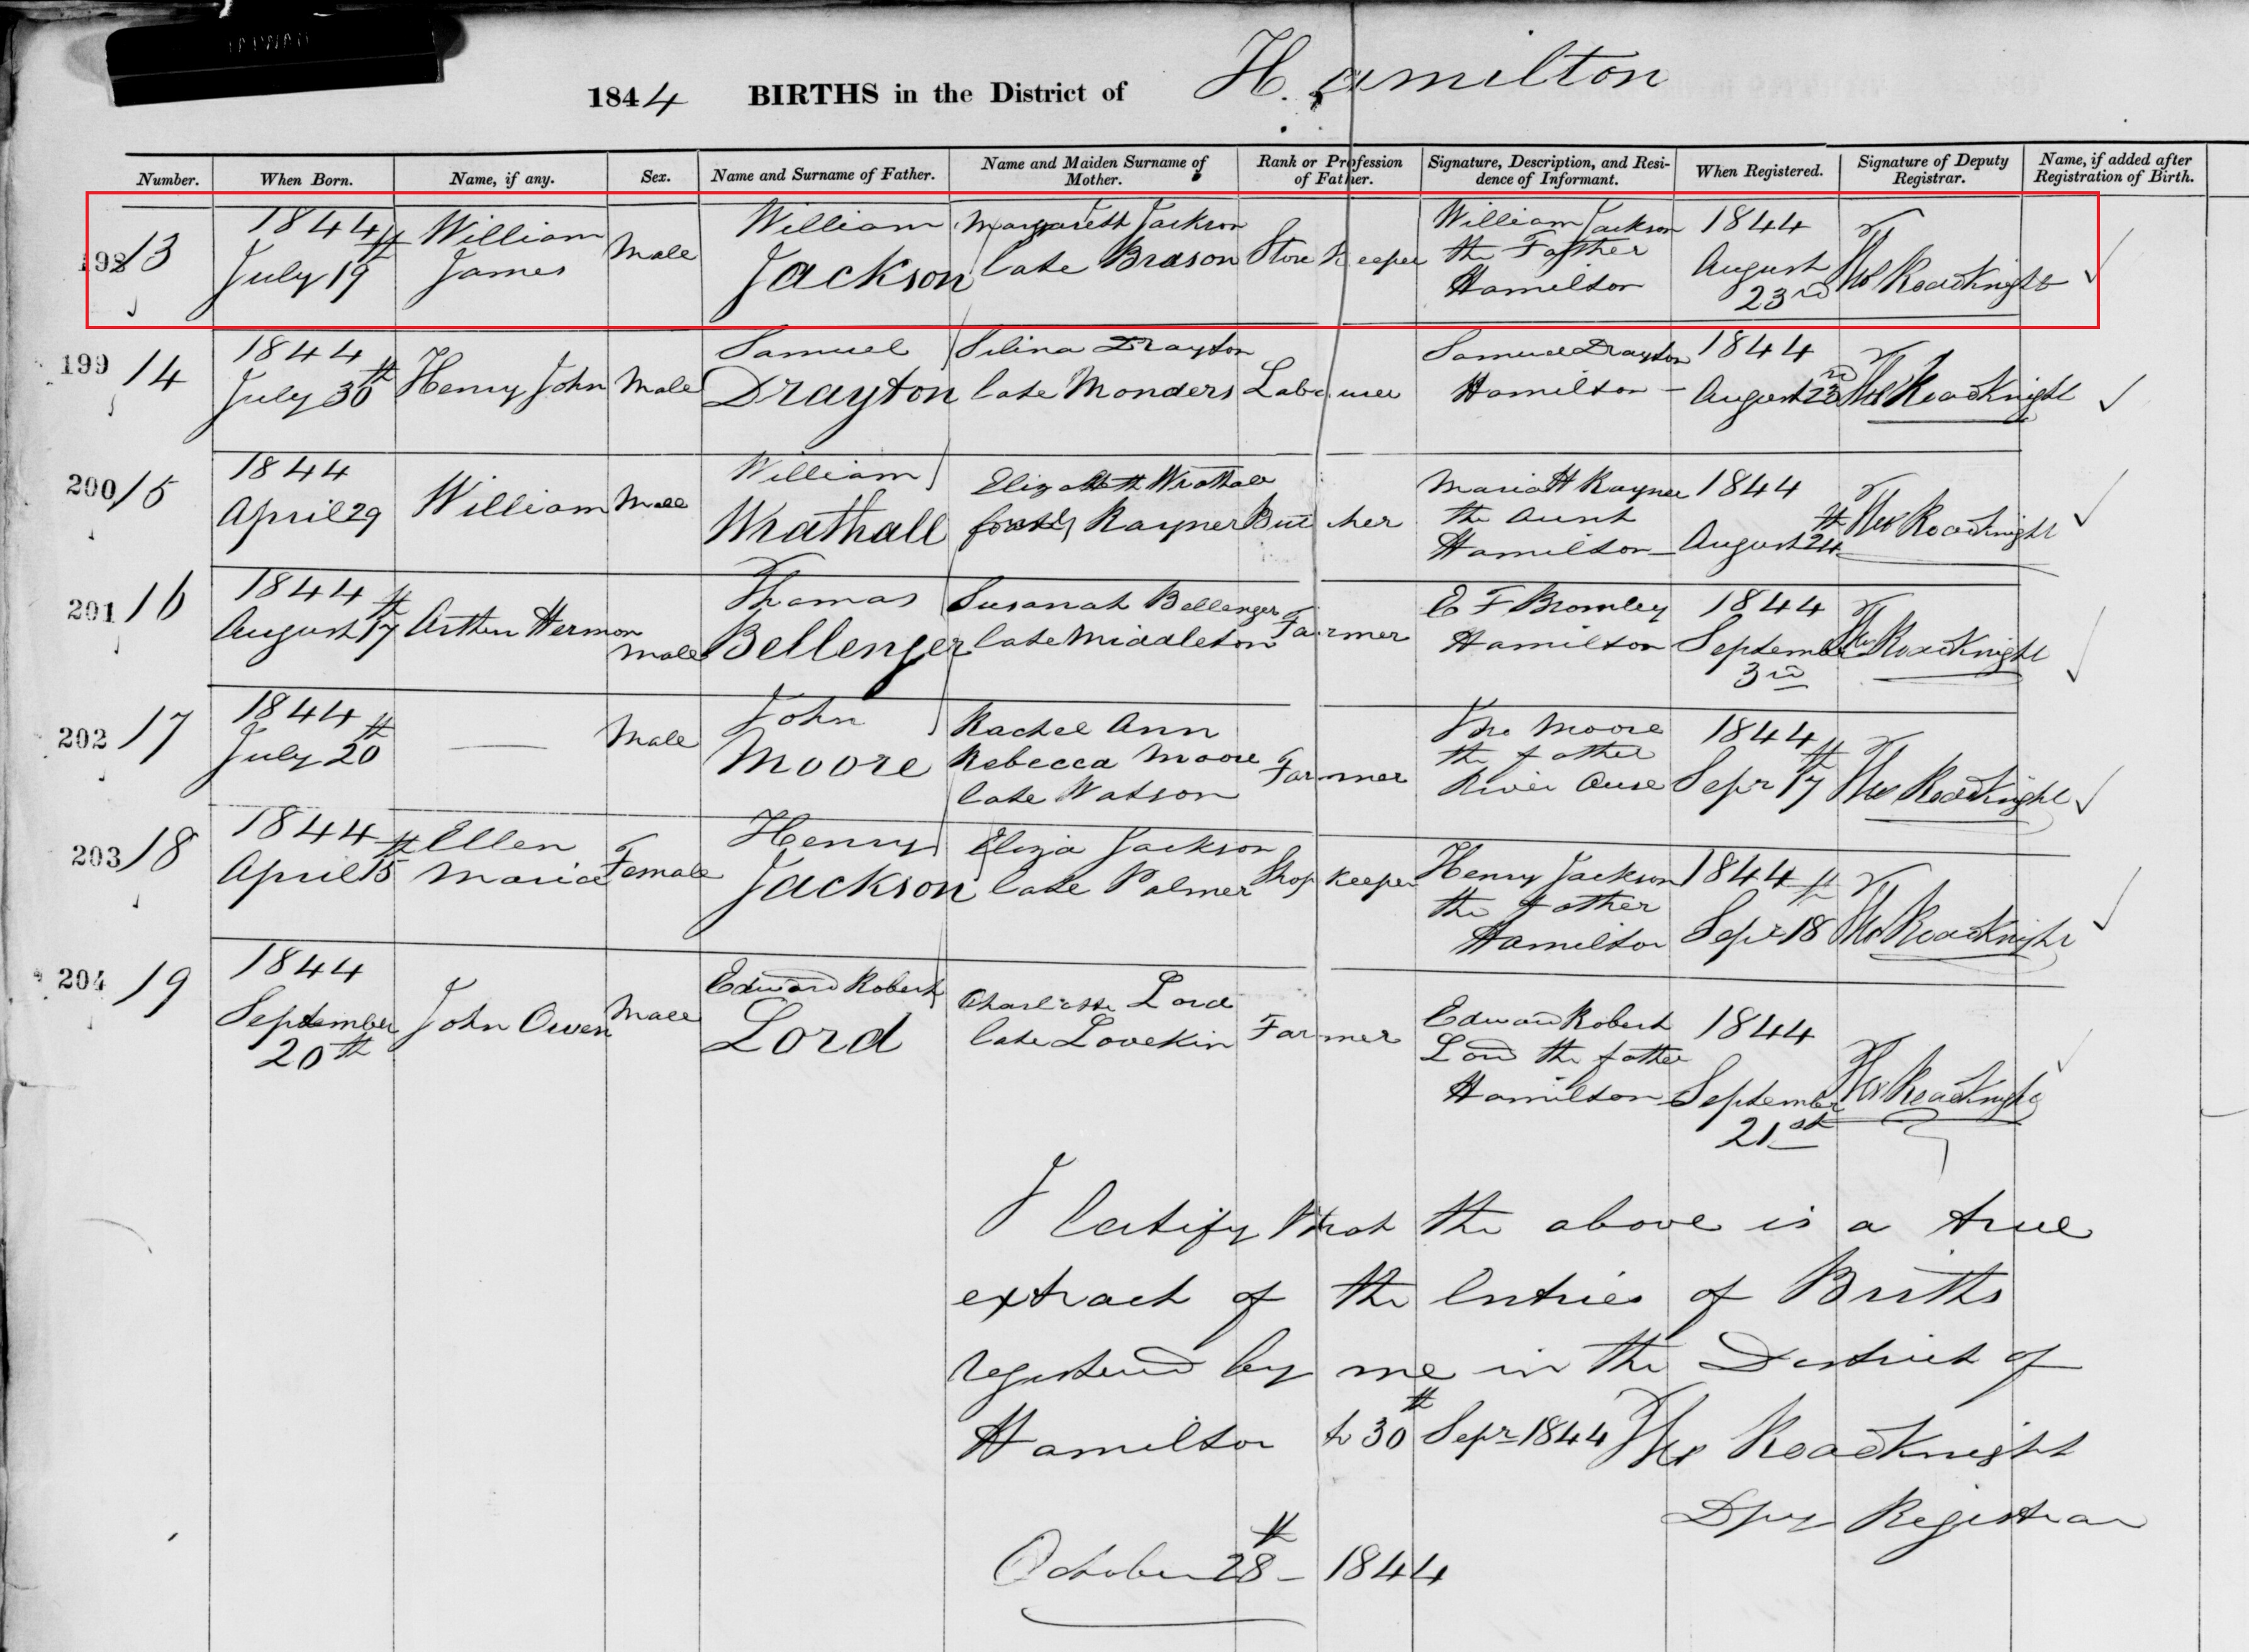 1844 BIRTHS in the District of Hamilton
Number. When Born. Name, if any. Sex. Name and Surname of Father. Name and Maiden Surname of Mother. Rank or Profession of Father. Signature, Description, and Residence of Informant. When Registered. Signature of Deputy Registrar. Name, if added after Registration of Birth.
198 13 1844 July 19th William James Male William Jackson Margarett Jackson late Brason Store Keeper William Jackson the Father Hamilton 1844 August 23rd Thos Roadknight
199 14 1844 July 30th Henry John Male Samuel Drayton Selina Drayton late Monders Labourer Samuel Drayton Hamilton 1844 August 23rd Thos Roadknight
200 15 1844 April 29 William Male William Wrathall Elizabeth Wrathall Rayner Butcher Maria H Rayner the Aunt Hamilton 1844 August 24th Thos Roadknight
201 16 1844 August 17th Arthur Hermon Male Thomas Bellenger Susanah Bellenger late Middleton Farmer E F Bromley Hamilton 1844 September 3rd Thos Roadknight
202 17 1844 July 20th — Male John Moore Rachel Ann Rebecca Moore late Watson Farmer Jno Moore the father River Ouse 1844 Sepr 17th Thos Roadknight
203 18 1844 April 15th Ellen Maria Female Henry Jackson Eliza Jackson late Palmer Shop Keeper Henry Jackson the father Hamilton 1844 Sepr 18th Thos Roadknight
204 19 1844 September 20th John Owen Male Edward Robert Lord Charlotte Lord late Lovekin Farmer Edward Robert Lord the father Hamilton 1844 September 21st Thos Roadknight
I Certify that the above is a true
extract of the Entries of Births
registered by me in the District of
Hamilton to 30th Sepr 1844 Thos Roadknight
Dpy Registrar
October 28th – 1844